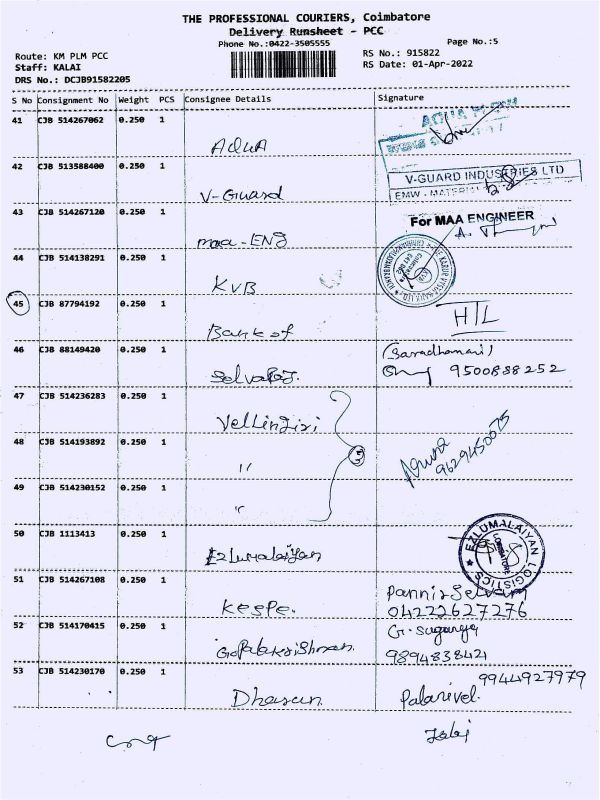 THE PROFESSIONAL COURIERS, Coimbatore
Delivery Runsheet - PCC
Phone No.:0422-3505555
Page No.:5
Route: KM PLM PCC
RS No.: 915822
Staff: KALAI
RS Date: 01-Apr-2022
DRS No.: DCJB91582205
S No Consignment No Weight PCS Consignee Details Signature
41 CJB 514267062 0.250 1 AQUA
42 CJB 513588400 0.250 1 V-Guard V-GUARD INDUSTRIES LTD
43 CJB 514267120 0.250 1 maa-ENG For MAA ENGINEER
44 CJB 514138291 0.250 1 KVB
45 CJB 87794192 0.250 1 Bank of HTL
46 CJB 88149420 0.250 1 Selvaraj. (Saradhamani)
9500888252
47 CJB 514236283 0.250 1 Vellingiri
48 CJB 514193892 0.250 1 "
9629450075
49 CJB 514230152 0.250 1 "
50 CJB 1113413 0.250 1 Ezlumalaiyan EZLUMALAIYAN LOGISTICS
51 CJB 514267108 0.250 1 Kespe. Pannir Selvam
04222627276
52 CJB 514170415 0.250 1 Gopalakrishnan. G. Suganya
9894838421
53 CJB 514230170 0.250 1 Dharun 9944927979
Palanivel.